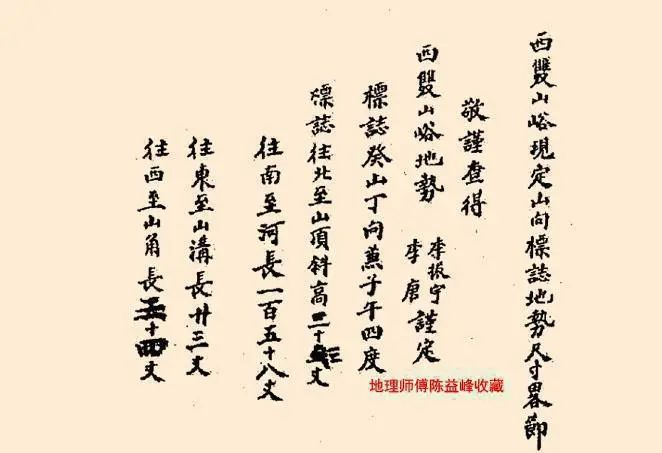 西雙山峪現定山向標誌地勢尺寸畧節
敬謹查得
西雙山峪地勢
李振宇
李唐謹定
標誌癸山丁向兼子午四度
標誌往北至山頂斜高二十三丈
往南至河長一百五十八丈
往東至山溝長廿三丈
往西至山角長十丈
地理师傅陈益峰收藏